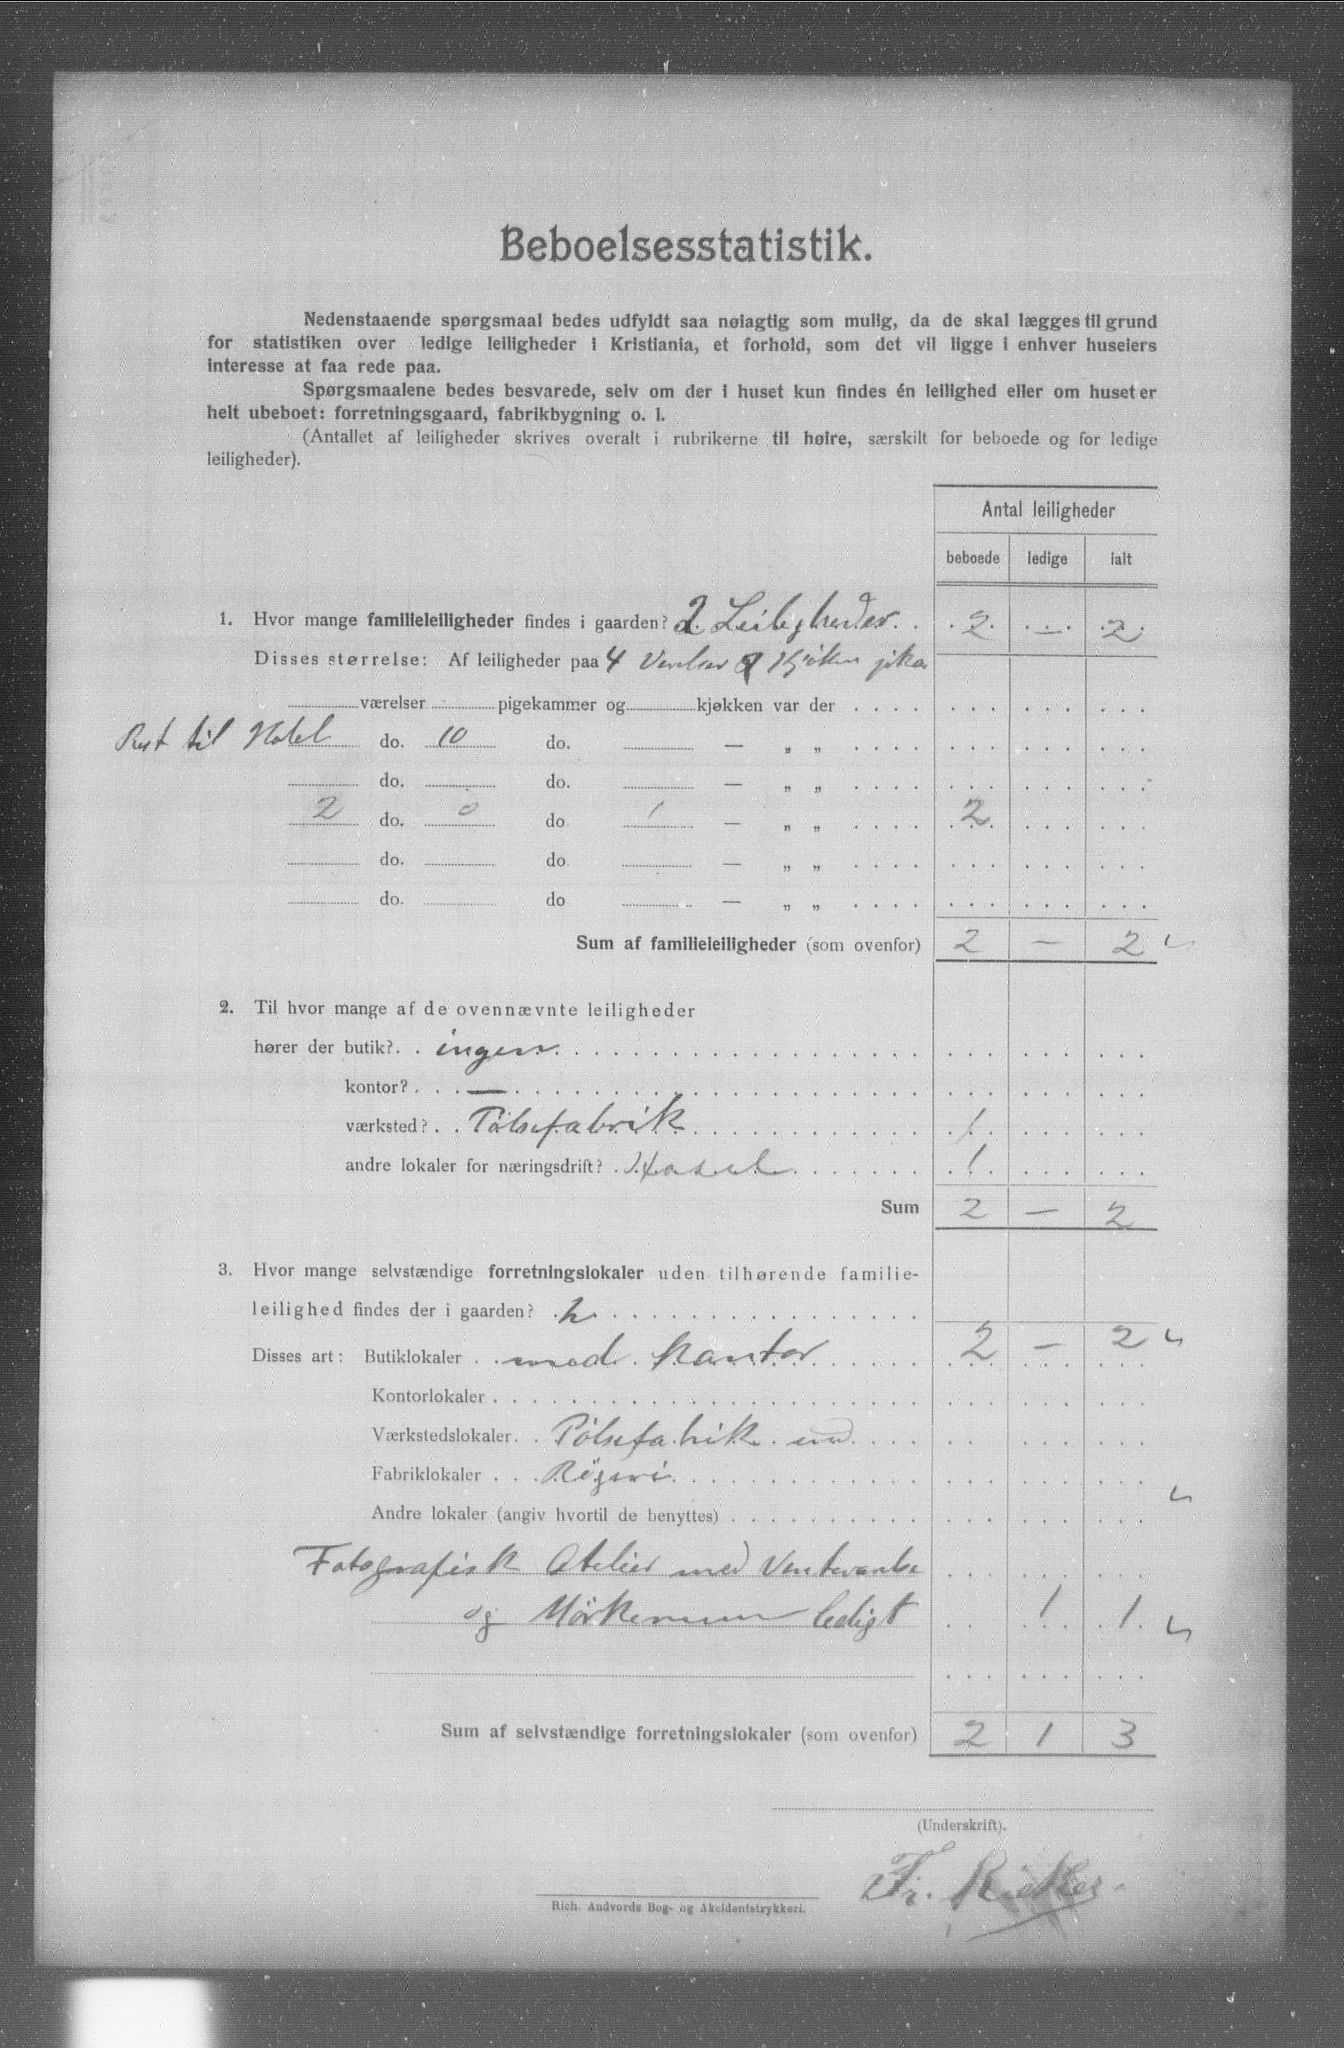 Beboelsesstatistik.
Nedenstaaende spørgsmaal bedes udfyldt saa nøiagtig som mulig, da de skal lægges til grund
for statistiken over ledige leiligheder i Kristiania, et forhold, som det vil ligge i enhver huseiers
interesse at faa rede paa.
Spørgsmaalene bedes besvarede, selv om der i huset kun findes én leilighed eller om huset er
helt ubeboet: forretningsgaard, fabrikbygning o. l.
(Antallet af leiligheder skrives overalt i rubrikerne til høire, særskilt for beboede og for ledige
leiligheder).
Antal leiligheder
beboede ledige ialt
1. Hvor mange familieleiligheder findes i gaarden? 2 Leiligheder. 2 — 2
Disses størrelse: Af leiligheder paa 4
værelser pigekammer og kjøkken var der
Rest til Hotel do. 10 do. — „ „
do. do. — „ „
2 do. 0 do 1 — „ „ 2
do. do — „ „
do. do — „ „
Sum af familieleiligheder (som ovenfor) 2 — 2
2. Til hvor mange af de ovennævnte leiligheder
hører der butik? ingen
kontor? —
værksted? Pølsefabrik 1
andre lokaler for næringsdrift? 1
Sum 2 — 2
3. Hvor mange selvstændige forretningslokaler uden tilhørende familie-
leilighed findes der i gaarden? 2
Disses art: Butiklokaler med kontor 2 — 2
Kontorlokaler
Værkstedslokaler. Pølsefabrik
Fabriklokaler Røgeri
Andre lokaler (angiv hvortil de benyttes)
Fotografisk Atelier med
og Mørkerum ledigt 1 1
Sum af selvstændige forretningslokaler (som ovenfor) 2 1 3
(Underskrift).
Fr.
Rich. Andvords Bog- og Akcidentstrykkeri.